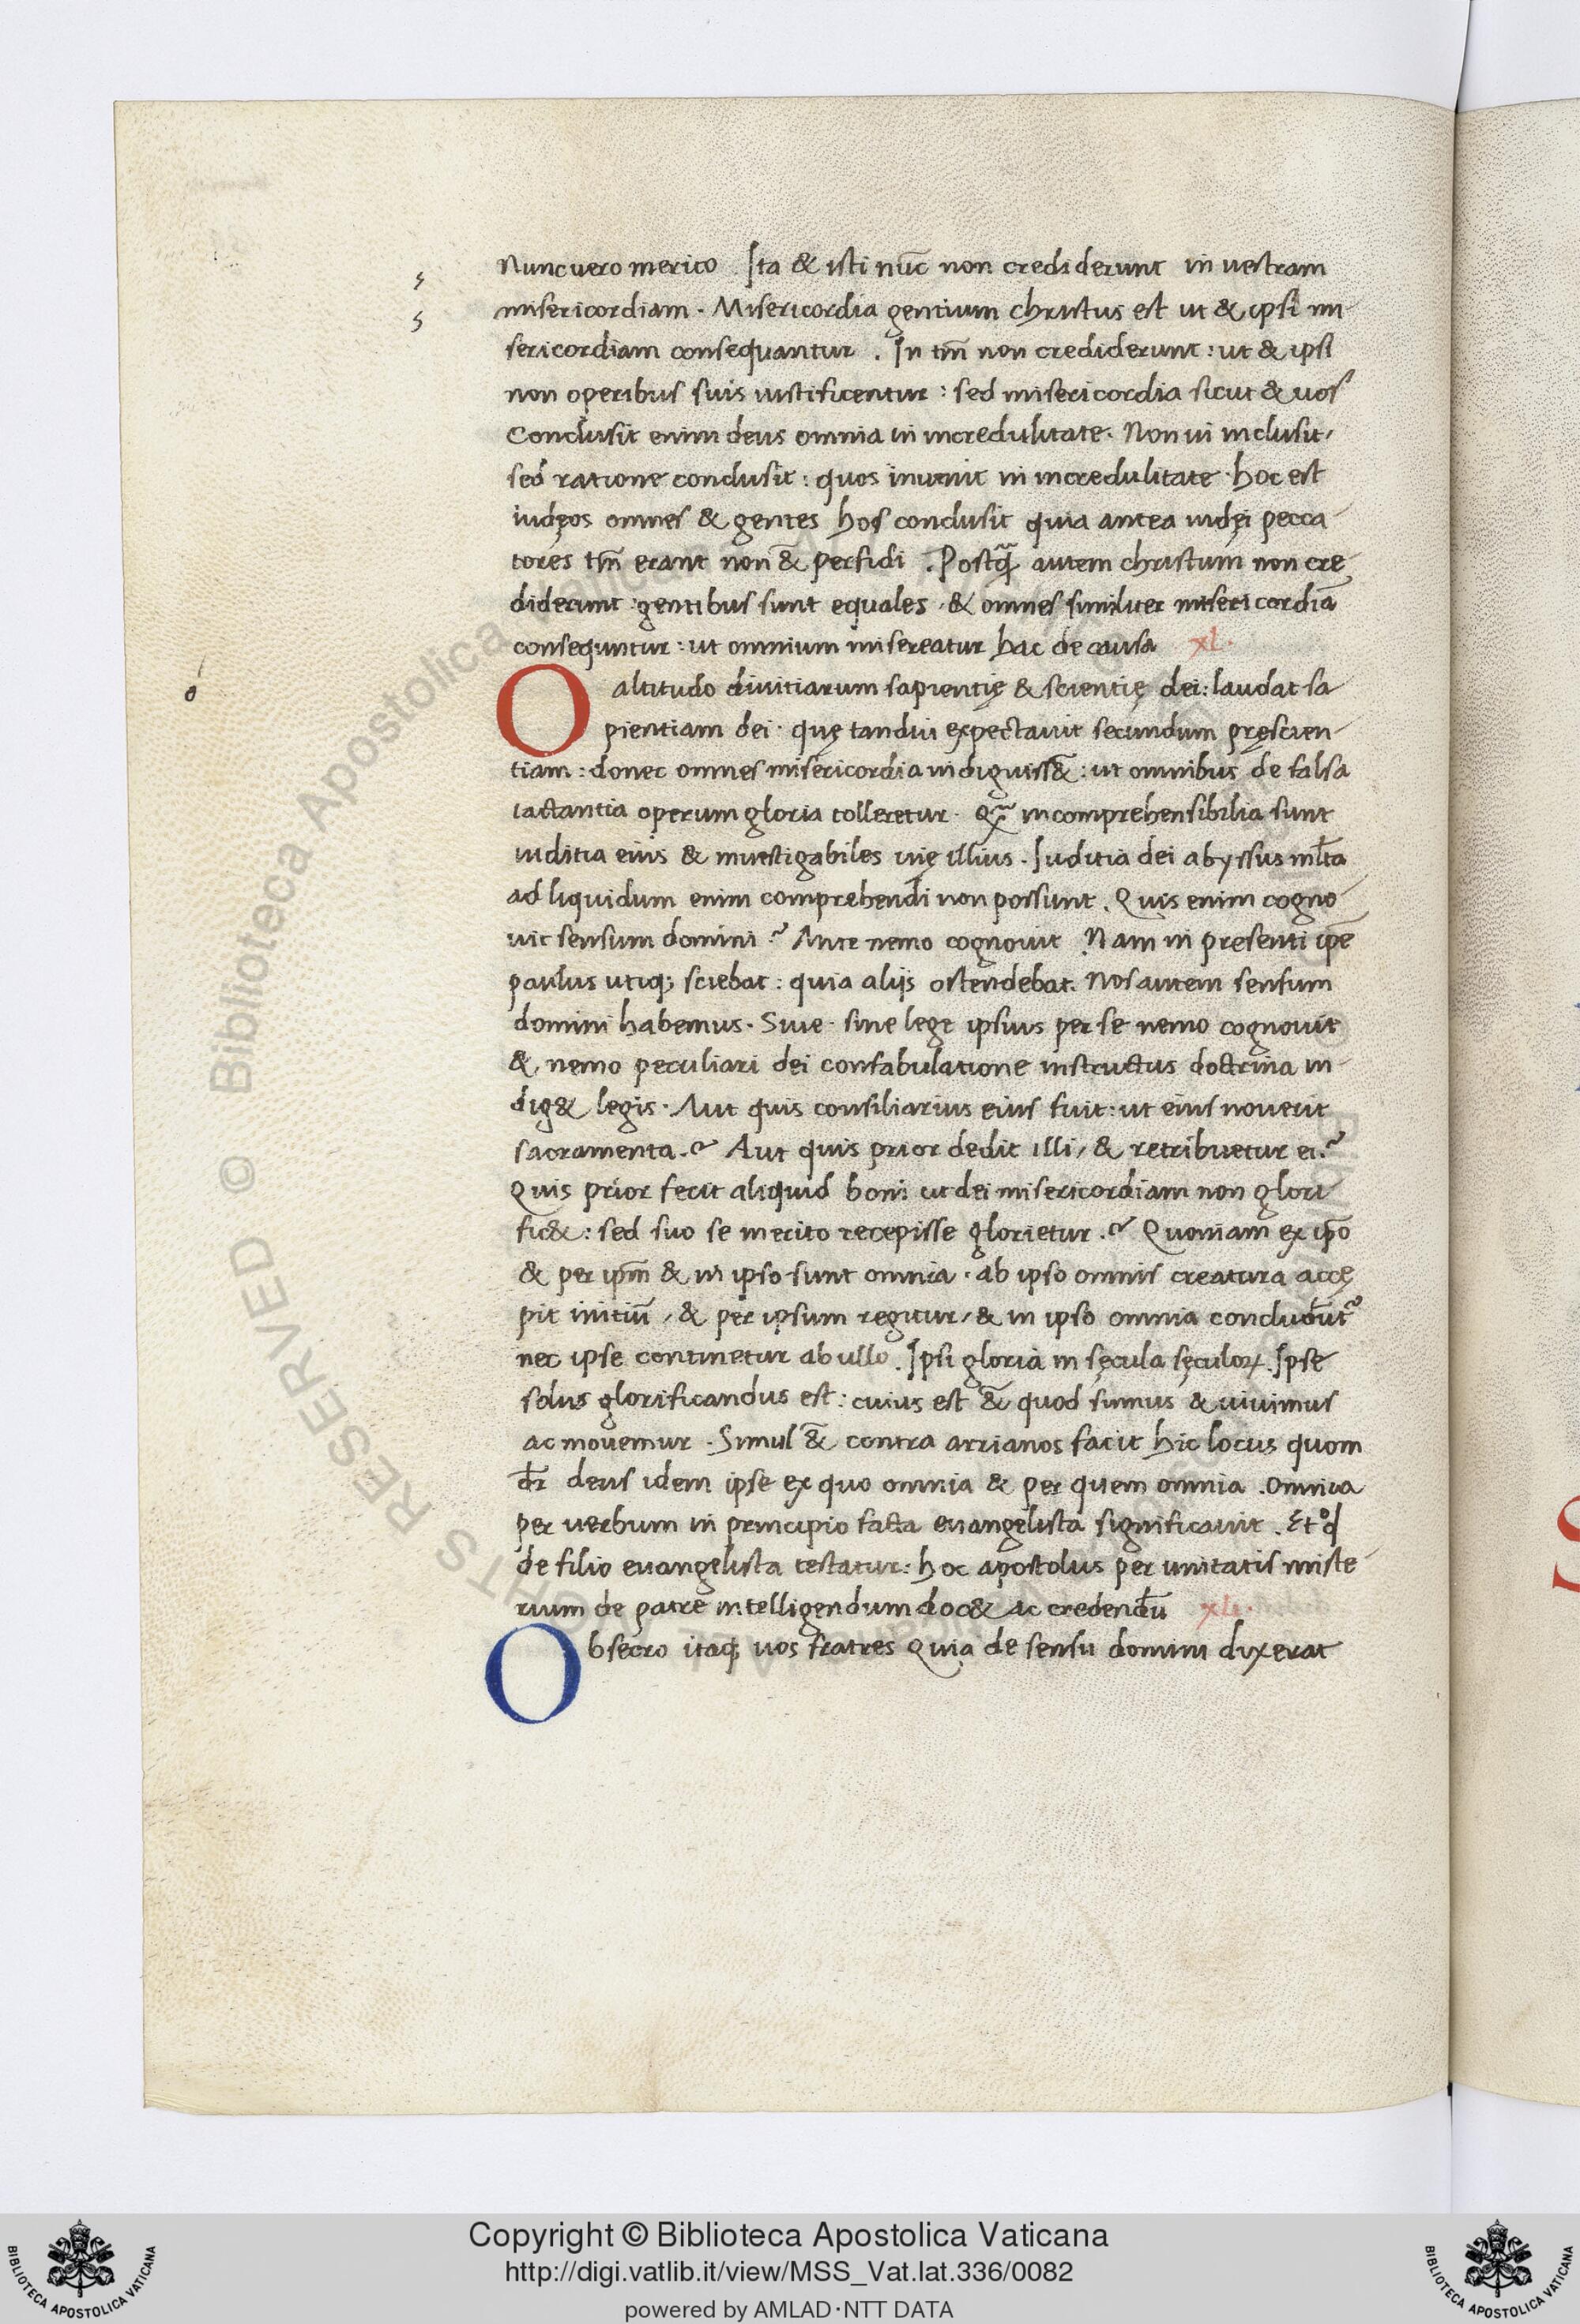 Nunc uero merito. Ita & isti nūc non crediderunt in uestram
misericordiam. Misericordia gentium christus est ut & ipsi mi-
sericordiam consequantur. In tm̄ non crediderunt: ut & ipsi
non operibus suis iustificentur: sed misericordia sicut & uos
Conclusit enim deus omnia in incredulitate. Non ui inclusit,
sed ratione conclusit: quos inuenit in incredulitate. hoc est
iudęos omnes & gentes hos conclusit quia antea iudęi pecca-
tores tm̄ erant non &̄ perfidi. Postq̄ autem christum non cre-
diderunt: gentibus sunt equales, & omnes similiter misericordiā
consequntur: ut omnium misereatur hac de causa xl.
ó
O altitudo diuitiarum sapientię & scientię dei: laudat sa-
pientiam dei. quę tandiu expectauit secundum pręscien-
tiam: donec omnes misericordia indiguiss&: ut omnibus de falsa
iactantia operum gloria tolleretur. Qꝫ incomprehensibilia sunt
iuditia eius & inuestigabiles uię illius. Iuditia dei abyssus ml̄ta
ad liquidum enim comprehendi non possunt. Quis enim cogno-
uit sensum domini? Ante nemo cognouit. Nam in presenti ip̄e
paulus utiq; sciebat: quia alijs ostendebat. Nos autem sensum
domini habemus. Siue sine lege ipsius per se nemo cognouit
&, nemo peculiari dei confabulatione instructus doctrina in-
dig& legis. Aut quis consiliarius eius fuit: ut eius nouerit
sacramenta.? Aut quis prior dedit illi, & retribuetur ei.?
Quis prior fecit aliquid boni ut dei misericordiam non glori-
fic&: sed suo se merito recepisse glorietur.? Quoniam ex ip̄o
& per ip̄m & in ipso sunt omnia. ab ipso omnis creatura accę
pit initiū, & per ipsum regitur, & in ipso omnia concludūt᷑
nec ipse continetur ab ullo. Ipsi gloria in sęcula sęculoꝝ. Ipse
solus glorificandus est: cuius est &̄ quod sumus & uiuimus
ac mouemur. Simul &̄ contra arrianos facit hic locus quom
dr̄ deus idem ipse ex quo omnia & per quem omnia. Omnia
per uerbum in principio facta euangelista significauit. Et qͦd
de filio euangelista testatur: hoc apostolus per unitatis miste-
rium de patre intelligendum doc& ac credendū xli.
Obsecro itaq; uos fratres Quia de sensu domini dixerat
© Biblioteca Apostolica Vaticana
RIGHTS RESERVED
Copyright © Biblioteca Apostolica Vaticana
http://digi.vatlib.it/view/MSS_Vat.lat.336/0082
powered by AMLAD·NTT DATA
BIBLIOTECA APOSTOLICA VATICANA
BIBLIOTECA APOSTOLICA VATICANA